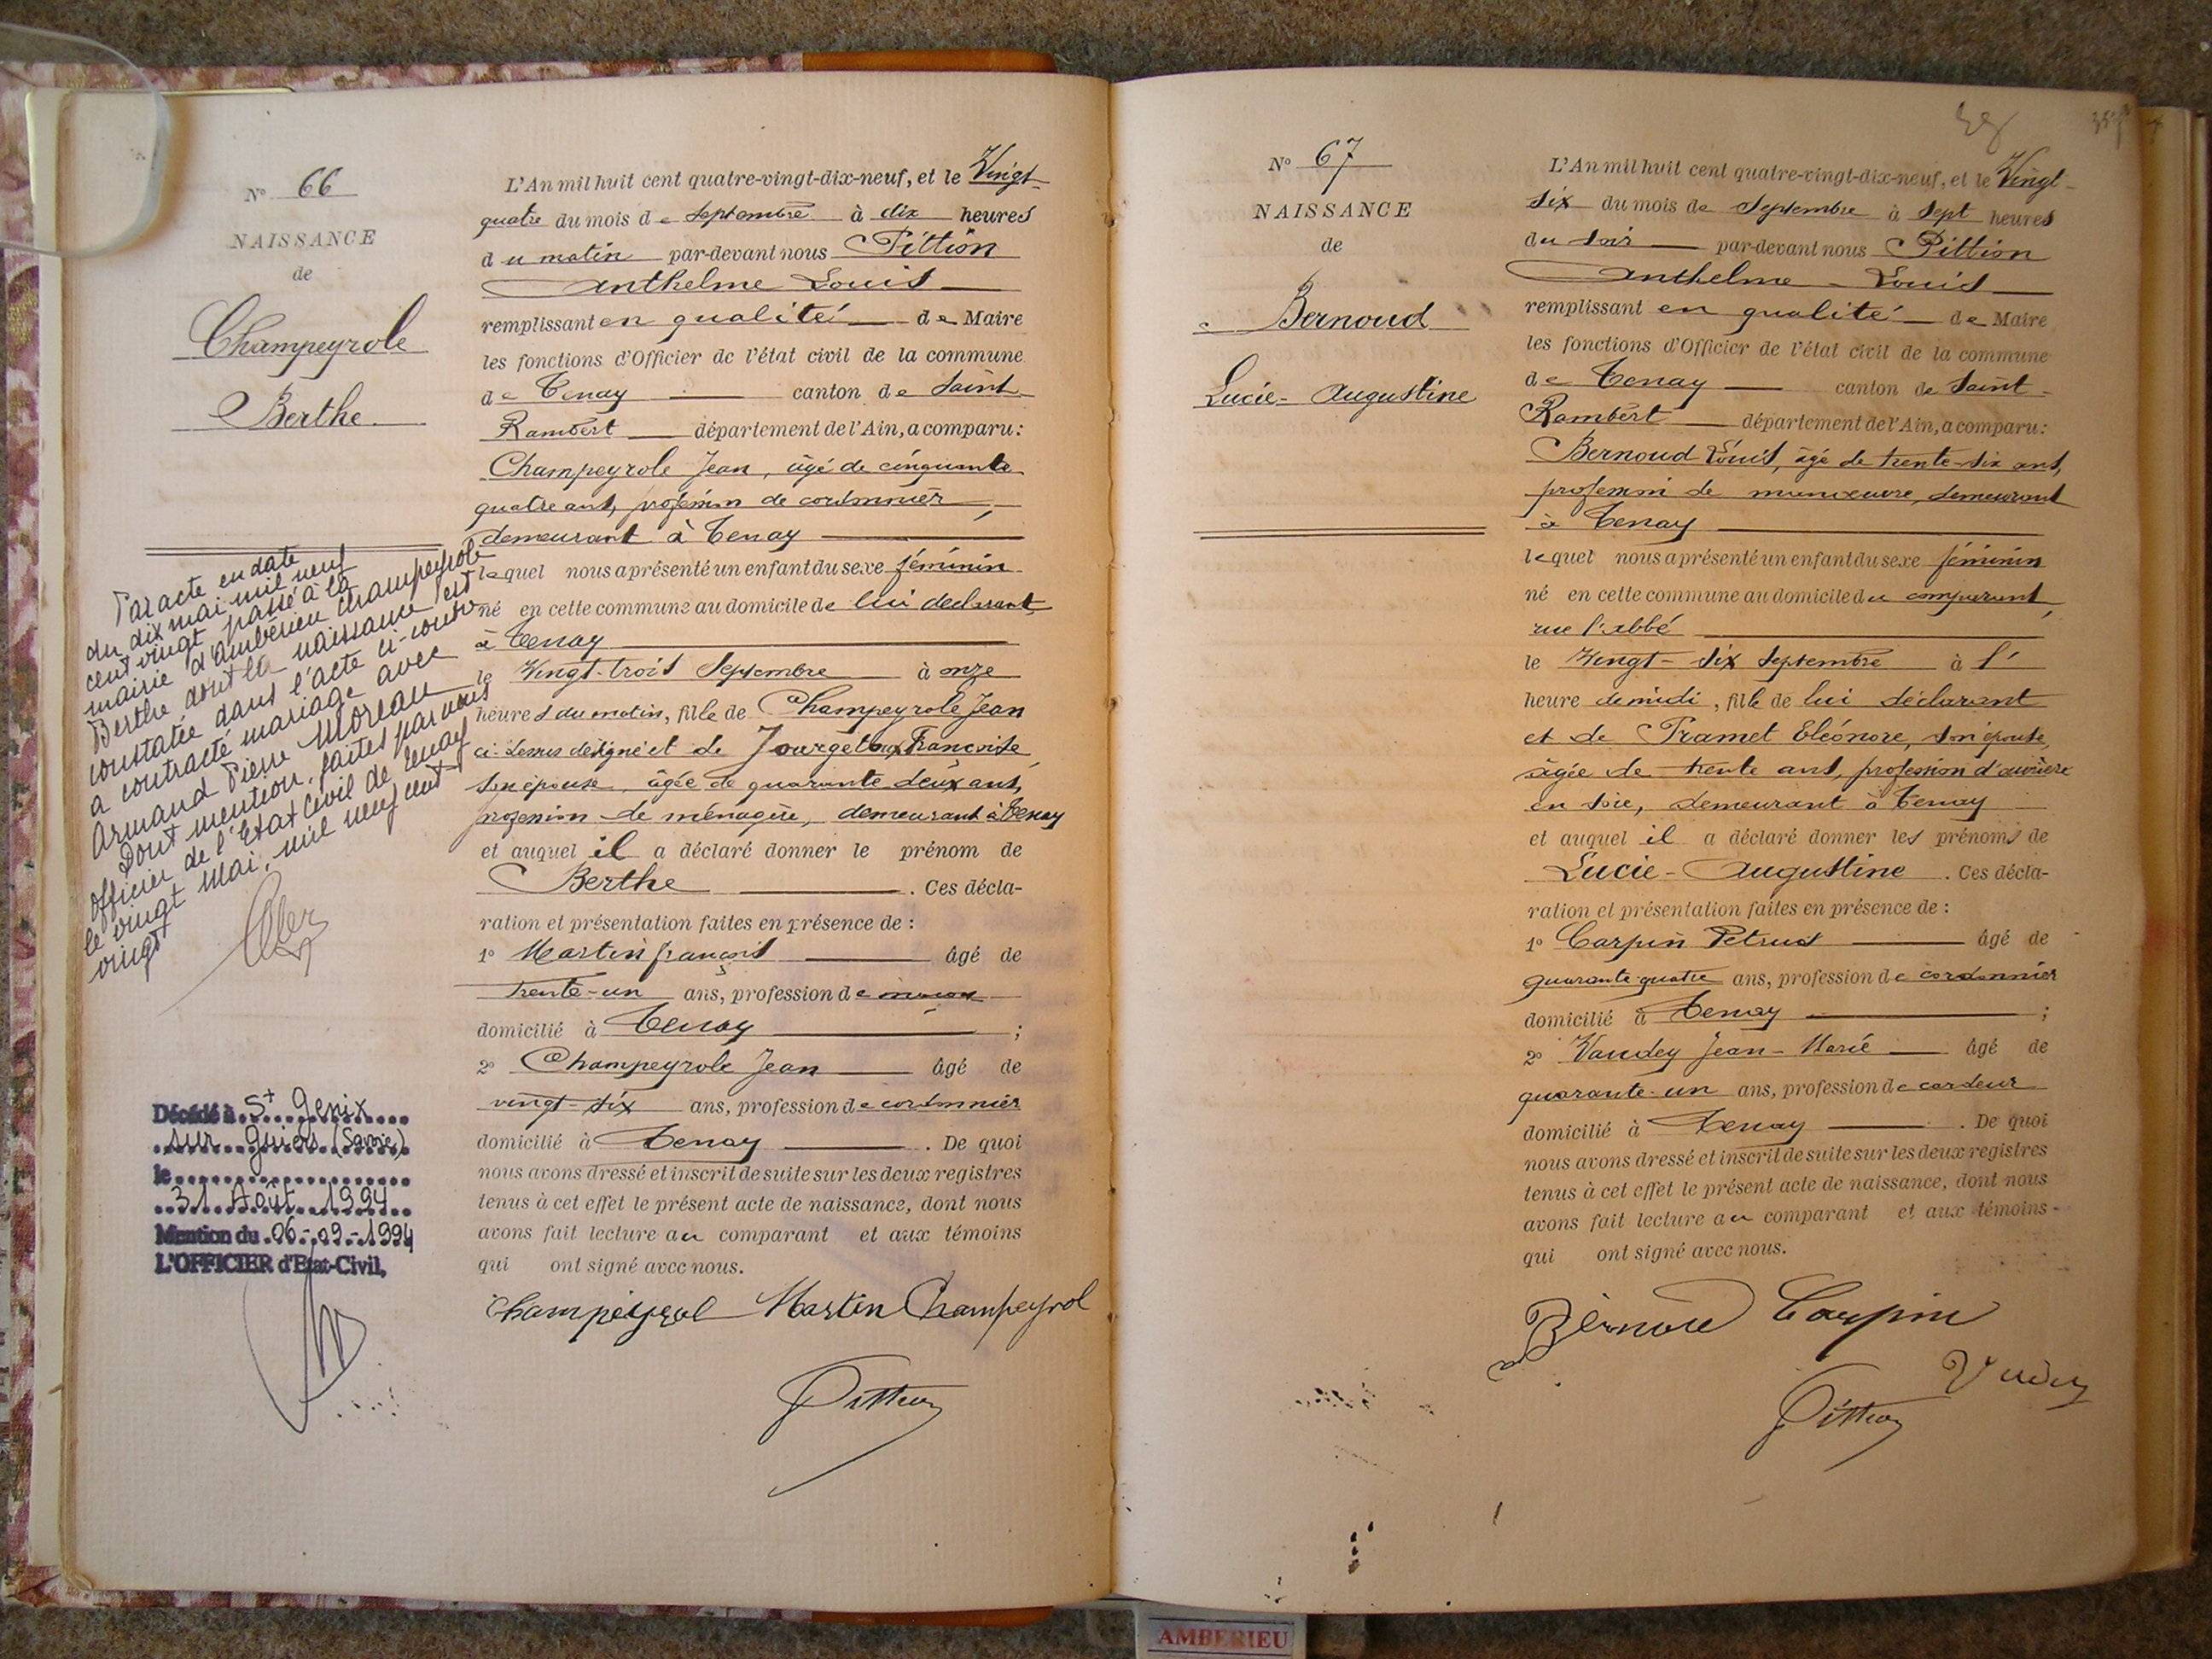 N° 66
NAISSANCE
de
Champeyrole
Berthe
Par acte en date
du dix mai mil neuf
cent vingt passé à la
mairie d'ambérieu Champeyrole
Berthe dont la naissance est
constatée dans l'acte ci-contre
a contracté mariage avec
Armand Pierre Moreau
Dont mention, faites par nous
officier de l'Etat civil de Tenay
le vingt Mai, mil neuf cent
vingt
Décédé à St Genix
sur Guiers (Savoie)
le
31 Août 1994
Mention du 06-09-1994
L'OFFICIER d'Etat-Civil,
L'An mil huit cent quatre-vingt-dix-neuf, et le Vingt-
quatre du mois de Septembre à dix heures
du matin par-devant nous Pittion
Anthelme Louis
remplissant en qualité de Maire
les fonctions d'Officier de l'état civil de la commune
de Tenay canton de Saint-
Rambert département de l'Ain, a comparu:
Champeyrole Jean, âgé de cinquante
quatre ans, profession de cordonnier,
demeurant à Tenay
lequel nous a présenté un enfant du sexe féminin
né en cette commune au domicile de lui déclarant,
à Tenay
le Vingt-trois Septembre à onze
heures du matin, fille de Champeyrole Jean
ci-dessus désigné et de Françoise
son épouse, âgée de quarante deux ans,
profession de ménagère, demeurant à Tenay
et auquel il a déclaré donner le prénom de
Berthe. Ces décla-
ration et présentation faites en présence de :
1° Martin françois âgé de
trente-un ans, profession de
domicilié à Tenay ;
2° Champeyrole Jean âgé de
vingt-six ans, profession de cordonnier
domicilié à Tenay. De quoi
nous avons dressé et inscrit de suite sur les deux registres
tenus à cet effet le présent acte de naissance, dont nous
avons fait lecture au comparant et aux témoins
qui ont signé avec nous.
Champeyrol Martin Champeyrol
Pittion
38
N° 67
NAISSANCE
de
Bernoud
Lucie-Augustine
L'An mil huit cent quatre-vingt-dix-neuf, et le Vingt-
six du mois de Septembre à sept heures
du soir par-devant nous Pittion
Anthelme-Louis
remplissant en qualité de Maire
les fonctions d'Officier de l'état civil de la commune
de Tenay canton de Saint-
Rambert département de l'Ain, a comparu:
Bernoud Louis, âgé de trente-six ans,
profession de manoeuvre, demeurant
à Tenay
lequel nous a présenté un enfant du sexe féminin
né en cette commune au domicile du comparant,
rue l'abbé
le Vingt-six Septembre à l'
heure de midi, fille de lui déclarant
et de Pramet Eléonore, son épouse,
âgée de trente ans, profession d'ouvrière
en soie, demeurant à Tenay
et auquel il a déclaré donner les prénoms de
Lucie-Augustine. Ces décla-
ration et présentation faites en présence de :
1° Carpin Petrus âgé de
quarante-quatre ans, profession de cordonnier
domicilié à Tenay ;
2° Vaudey Jean-Marie âgé de
quarante-un ans, profession de cardeur
domicilié à Tenay. De quoi
nous avons dressé et inscrit de suite sur les deux registres
tenus à cet effet le présent acte de naissance, dont nous
avons fait lecture au comparant et aux témoins
qui ont signé avec nous.
Bernoud Carpin
Pittion
AMBERIEU